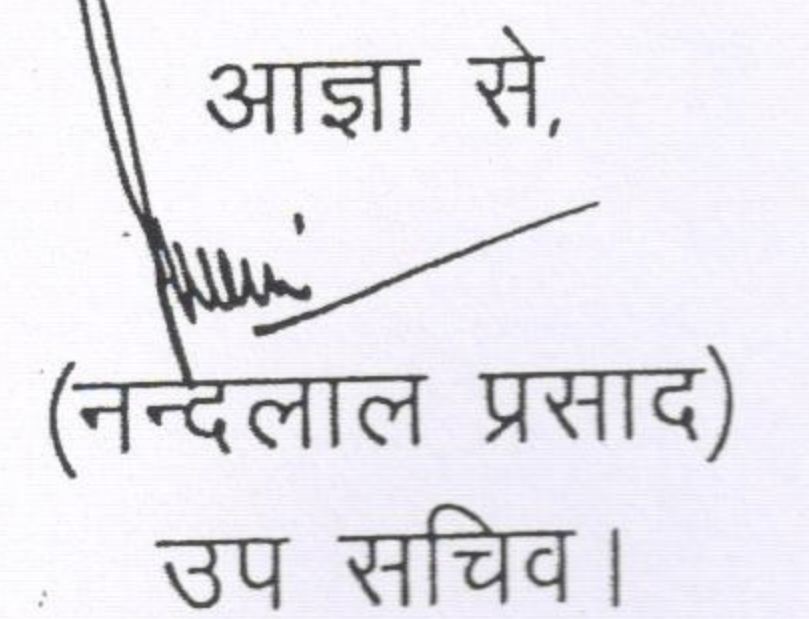 आज्ञा से,
(नन्दलाल प्रसाद)
उप सचिव।